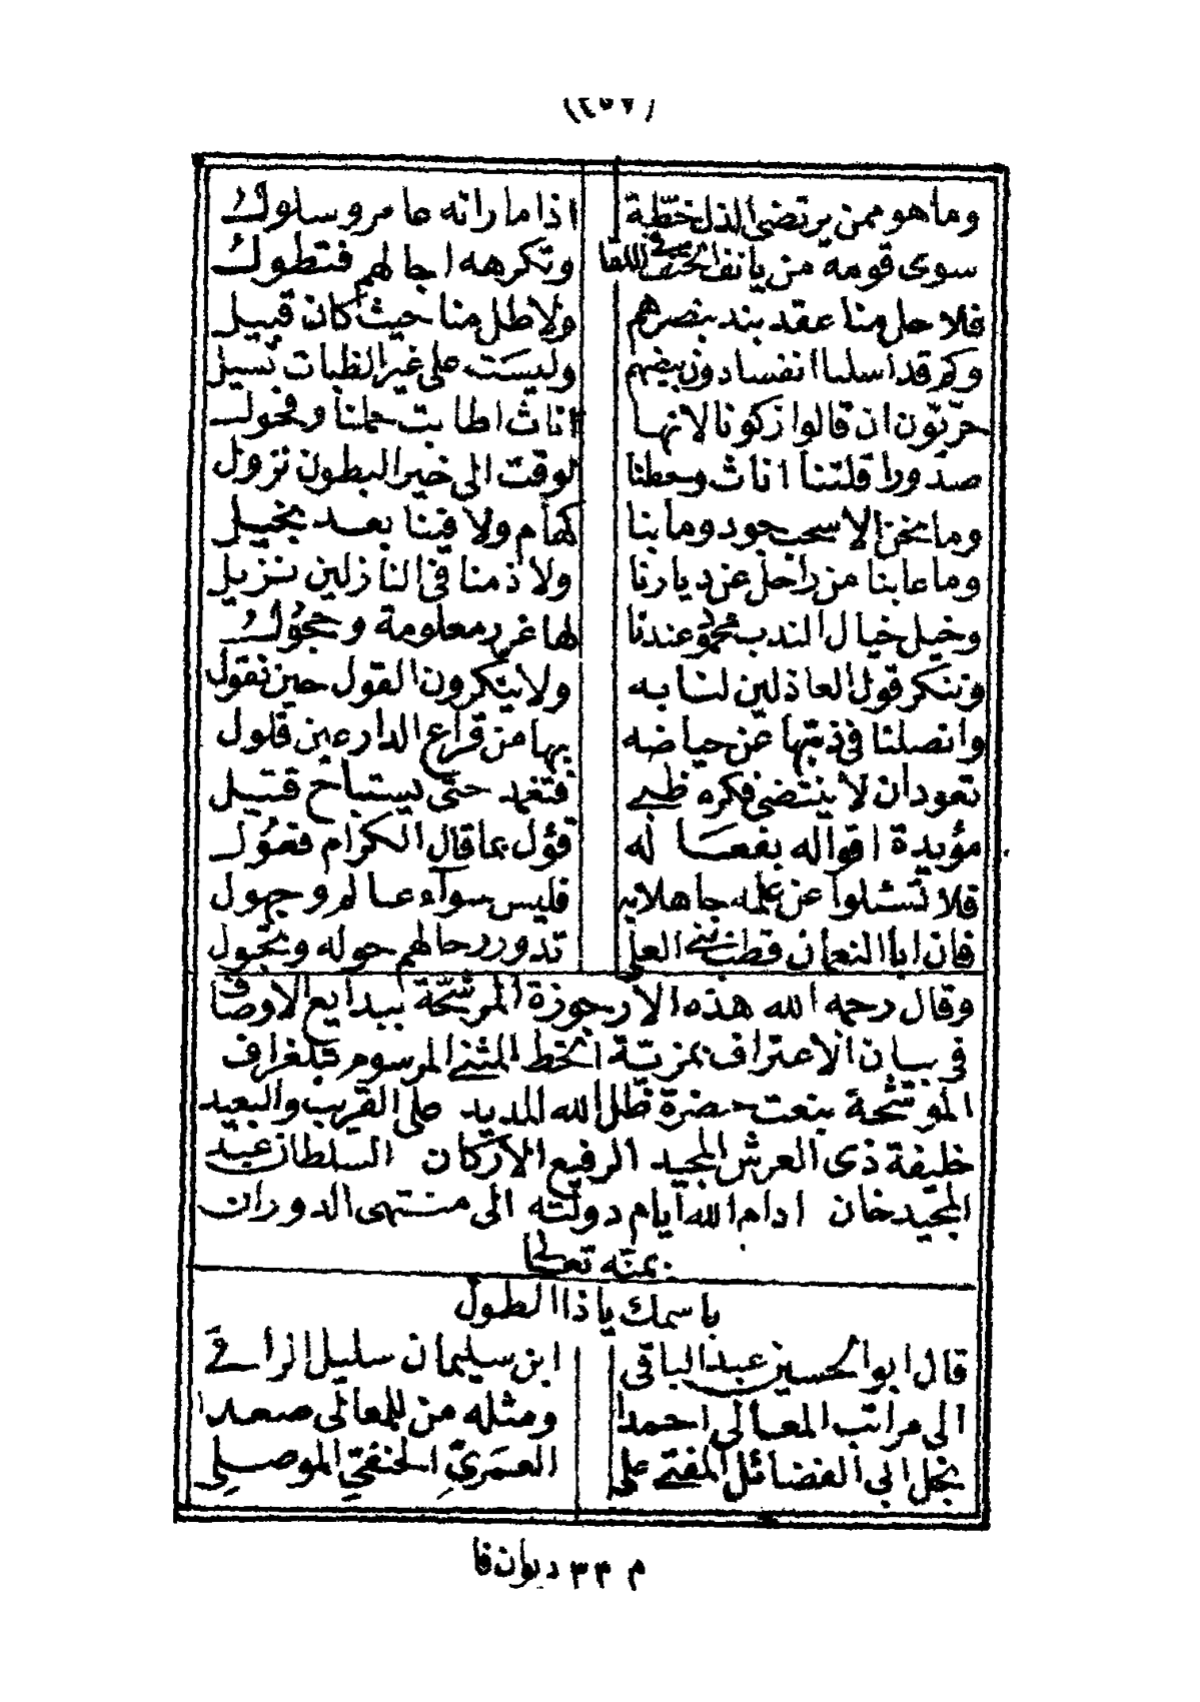 وما هو ممن يرتضى الذل خطة اذا ما راته عامر وسلول
سوى قومه من يانف الحتف اللقا وتكرهه اجالهم فتطول
فلا حل منا عقد بند بنصرهم ولا طل منا حيث كان قبيل
وكم قد اسلنا انفسا دون بيضهم وليست على غير الظبات تسيل
حريّون ان قالوا زكونا لانها اناث اطابت حملنا وفحول
صدورا قلتنا اناث وحطنا لوقت الى خير البطون نزول
وما نحن الا سحب جود وما بنا كهام ولا فينا يعد بخيل
وما عابنا من راحل عن ديارنا ولا ذمنا فى النازلين نزيل
وخيل خيال الندب محمود عندنا لها غرر معلومة وحجول
وتنكر قول العاذلين لنا به ولا ينكرون القول حين نقول
وانصلنا فى ذبها عن حياضه بها من قراع الدارعين فلول
تعود ان لا ينتضى فكره ظبى فتغمد حتى يستباح قتيل
مؤيدة اقواله بفعا له قؤل بما قال الكرام فعول
فلا تسئلوا عن علمه جاهلا به فليس سوآء عالم وجهول
فان ابا النعمان قطب بنى العلى تدور رحالهم حوله وتجول
وقال رحمه الله هذه الارجوزة المرشحة ببدايع الاوصاف
فى بيان الاعتراف بمزيّة الخط المثنى المرسوم تلغراف
الموشحة بنعت حضرة ظل الله المديد على القريب والبعيد
خليفة ذى العرش المجيد الرفيع الاركان السلطان عبد
المجيد خان ادام الله ايام دولته الى منتهى الدوران
بمنّه تعالى
باسمك ياذا الطول
قال ابو الحسين عبد الباقى ابن سليمان سليل الراقى
الى مراتب المعالى احمدا ومثله من للمعالى صعدا
نجل ابى الفضائل المفتى على العمرىّ الحنفىّ الموصلى
م ٣٣ ديوان فا